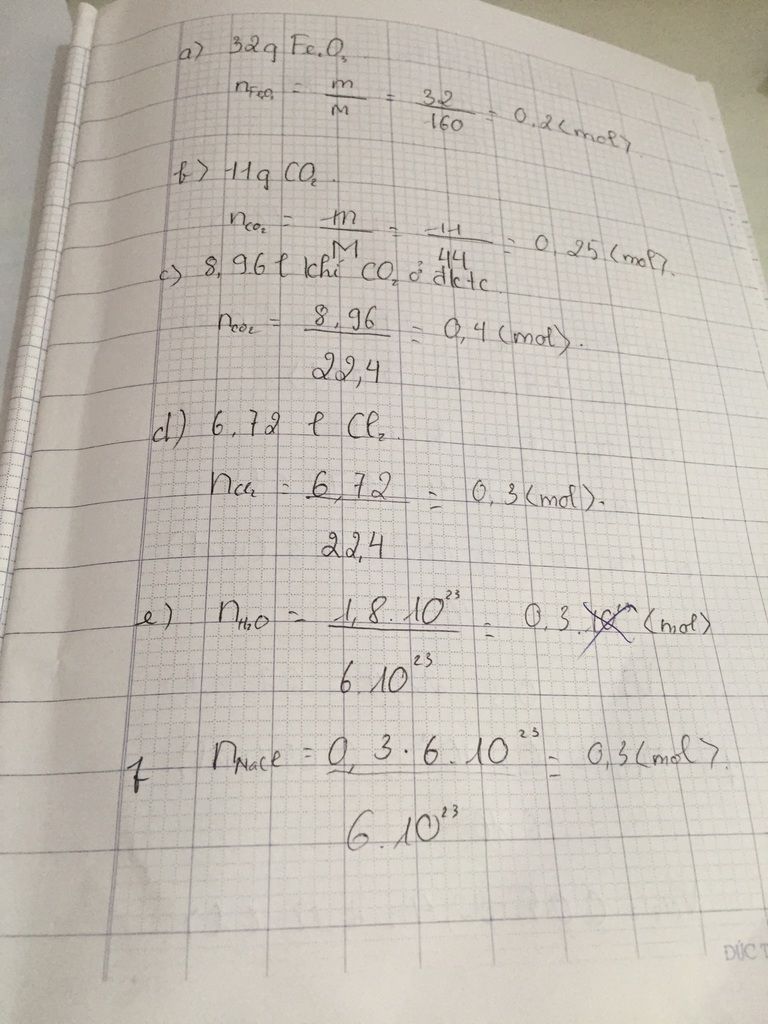 a) 32g Fe₂O₃
nFe₂O₃ = m/M = 32/160 = 0.2 (mol)
b) 11g CO₂.
nCO₂ = m/M = 11/44 = 0,25 (mol).
c) 8,96 l khí CO₂ ở đktc.
nCO₂ = 8,96/22,4 = 0,4 (mol).
d) 6,72 l Cl₂.
nCl₂ = 6,72/22,4 = 0,3 (mol).
e) nH₂O = 1,8.10²³/6.10²³ = 0,3 (mol)
f nNaCl = 0,3.6.10²³/6.10²³ = 0,3 (mol).
ĐỨC T